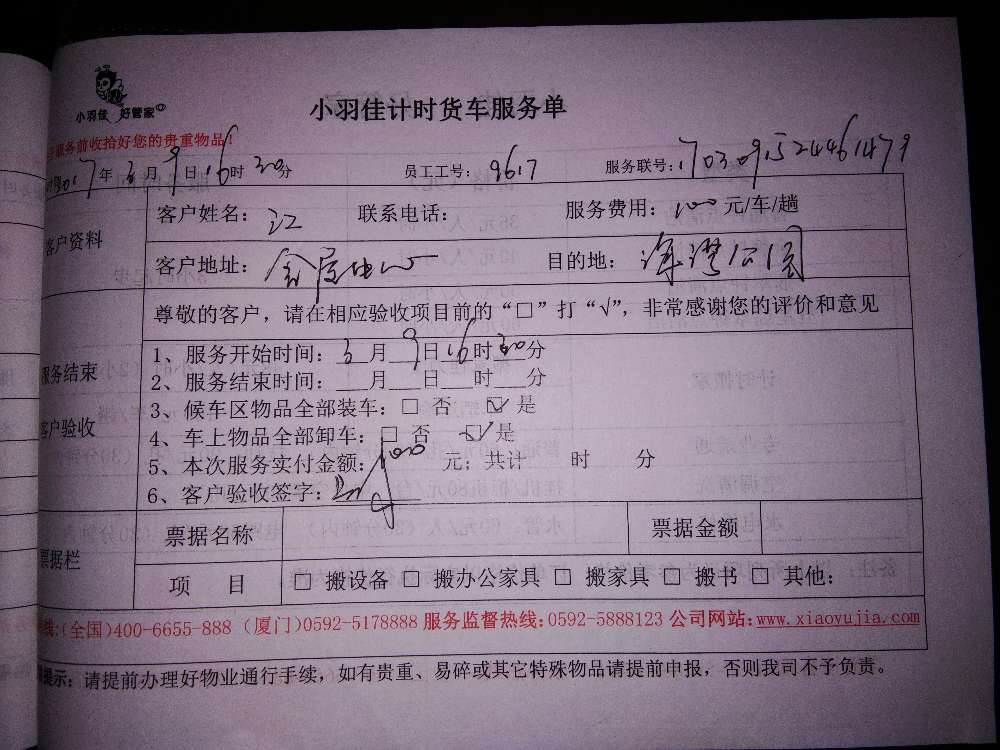 小羽佳 好管家
小羽佳计时货车服务单
服务前收拾好您的贵重物品！
2017年3月9日16时30分 员工工号：9617 服务联号：1703091524461479
客户资料
客户姓名：江 联系电话： 服务费用：100元/车/趟
客户地址： 目的地：海湾公园
尊敬的客户，请在相应验收项目前的“□”打“√”，非常感谢您的评价和意见
服务结束
客户验收
1、服务开始时间：3月9日16时30分
2、服务结束时间：___月___日___时___分
3、候车区物品全部装车：□ 否 ☑ 是
4、车上物品全部卸车：□ 否 ☑ 是
5、本次服务实付金额：100 元；共计 时 分
6、客户验收签字：
票据栏
票据名称 票据金额
项 目 □ 搬设备 □ 搬办公家具 □ 搬家具 □ 搬书 □ 其他：
线：(全国)400-6655-888（厦门)0592-5178888 服务监督热线：0592-5888123 公司网站：www.xiaoyujia.com
提示：请提前办理好物业通行手续，如有贵重、易碎或其它特殊物品请提前申报，否则我司不予负责。